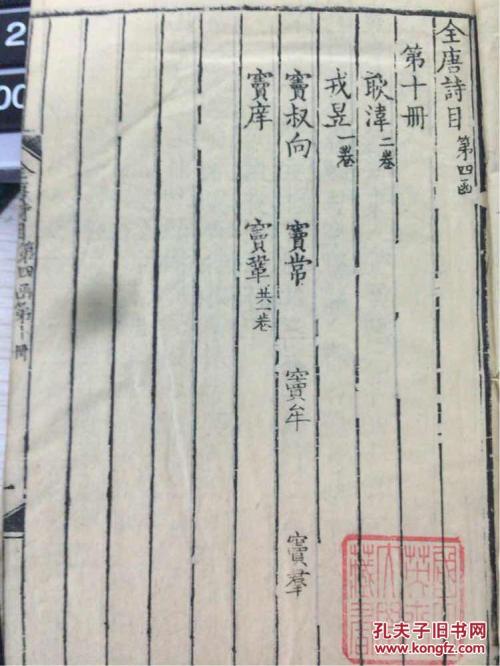 全唐詩目 第四函
第十冊
耿湋二卷
戎昱一卷
竇叔向 竇常 竇牟 竇羣
竇庠 竇鞏共一卷
全唐詩目 第四函第十冊
孔夫子旧书网
www.kongfz.com